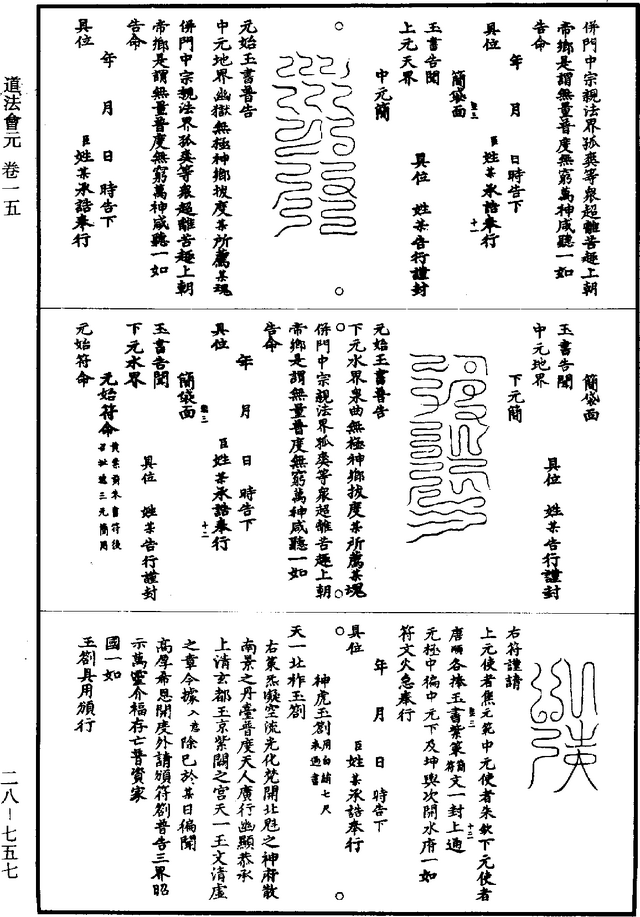 道法會元 卷一五
二八-七五七
併門中宗親法界孤爽等衆超離苦趣上朝
帝鄉是謂無量普度無窮萬神咸聽一如
告命
年 月 日 時告下
具位 臣 姓 某 承誥奉行
簡袋面
玉書告聞
上元天界
具位 姓 某 告行謹封
中元簡
元始玉書普告
中元地界幽獄無極神鄉拔度某所薦某魂
併門中宗親法界孤爽等衆超離苦趣上朝
帝鄉是謂無量普度無窮萬神咸聽一如
告命
年 月 日 時告下
具位 臣 姓 某 承誥奉行
簡袋面
玉書告聞
中元地界
具位 姓 某 告行謹封
下元簡
元始玉書普告
下元水界泉曲無極神鄉拔度某所薦某魂
併門中宗親法界孤爽等衆超離苦趣上朝
帝鄉是謂無量普度無窮萬神咸聽一如
告命
年 月 日 時告下
具位 臣 姓 某 承誥奉行
簡袋面
玉書告聞
下元水界
具位 姓 某 告行謹封
元始符命
元始符命
右符謹請
上元使者焦元範中元使者朱欽下元使者
唐順各捧玉書紫篆簡符文一封上通
元極中徧中元下及坤輿次開水府一如
符文火急奉行
年 月 日 時告下
具位 臣 姓 某 承誥奉行
神虎玉劄
天一北祚玉劄
右篆炁凝空流光化梵開北魁之神府散
南景之丹臺普度天人廣行幽顯恭承
上清玄都玉京紫闕之宮天一玉文清虛
之章今據入意除已於某日徧聞
高厚希恩開度外請頒符劄普告三界昭
示萬靈介福存亡普資家
國一如
玉劄具用頒行